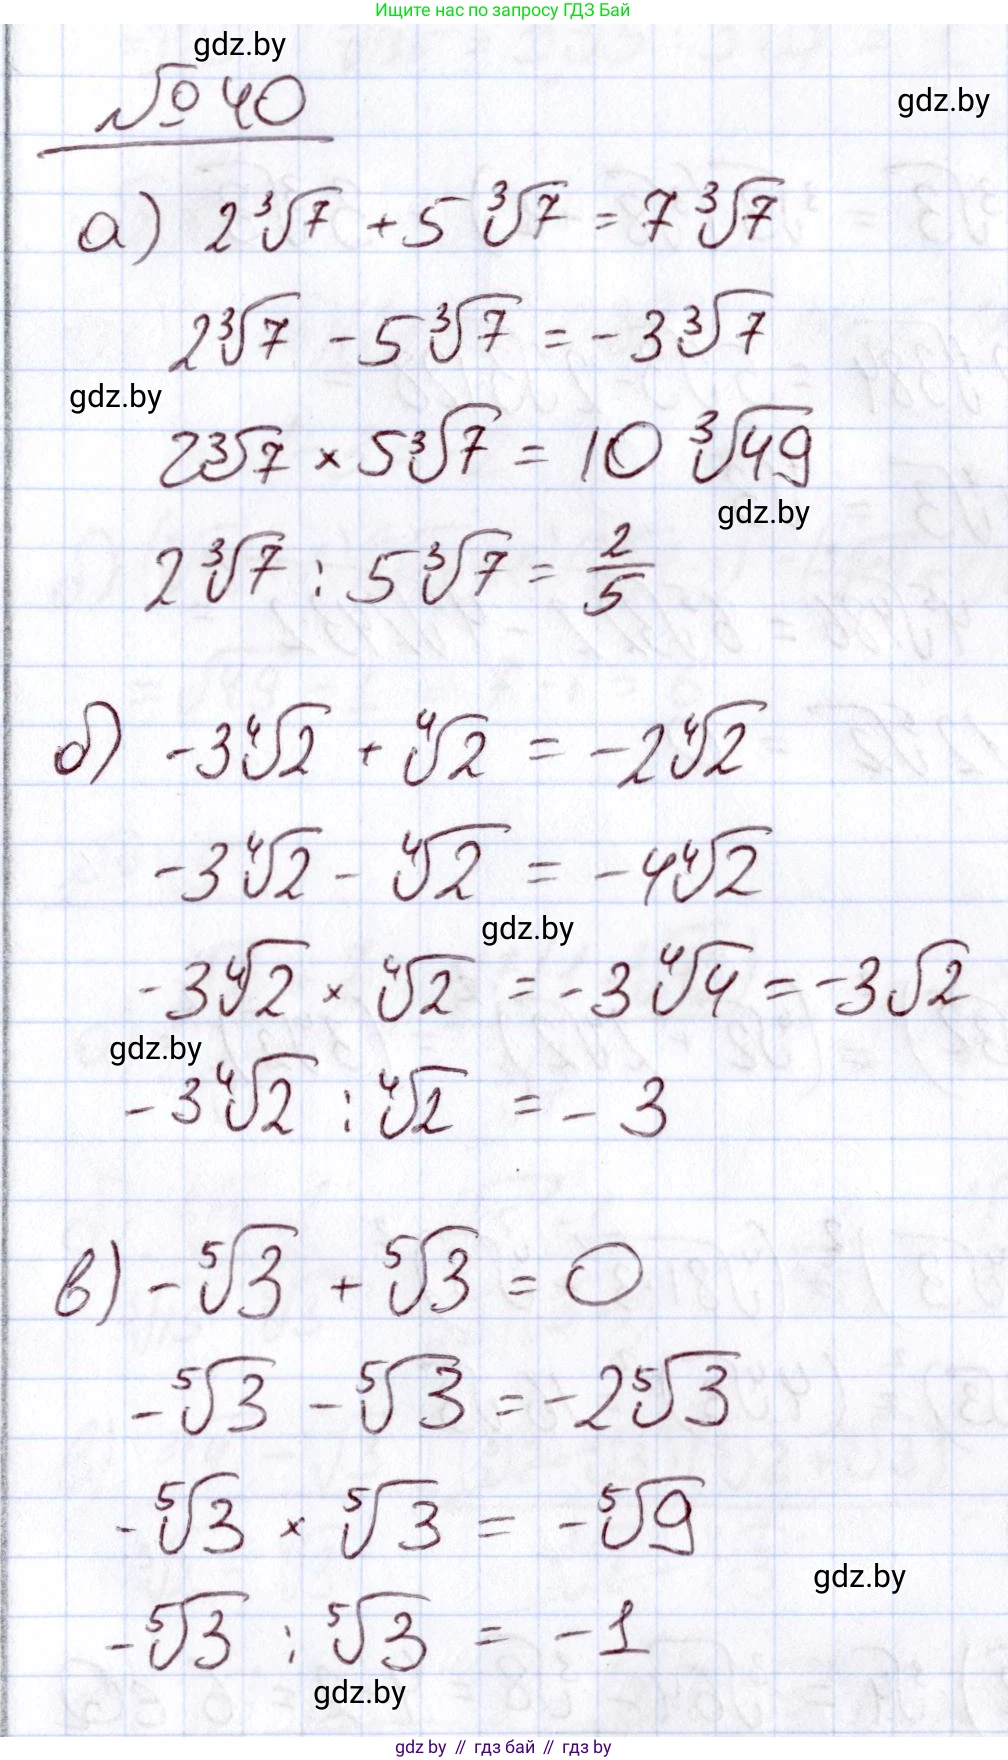 Ищите нас по запросу ГДЗ Бай
gdz.by
№ 40
gdz.by
а) 2∛7 + 5∛7 = 7∛7
2∛7 - 5∛7 = -3∛7
gdz.by
2∛7 × 5∛7 = 10∛49
gdz.by
2∛7 : 5∛7 = 2/5
б) -3∜2 + ∜2 = -2∜2
-3∜2 - ∜2 = -4∜2
gdz.by
-3∜2 × ∜2 = -3∜4 = -3√2
gdz.by
-3∜2 : ∜2 = -3
в) -⁵√3 + ⁵√3 = 0
-⁵√3 - ⁵√3 = -2⁵√3
-⁵√3 × ⁵√3 = -⁵√9
gdz.by
-⁵√3 : ⁵√3 = -1
gdz.by
gdz by // гдз бай // gdz by